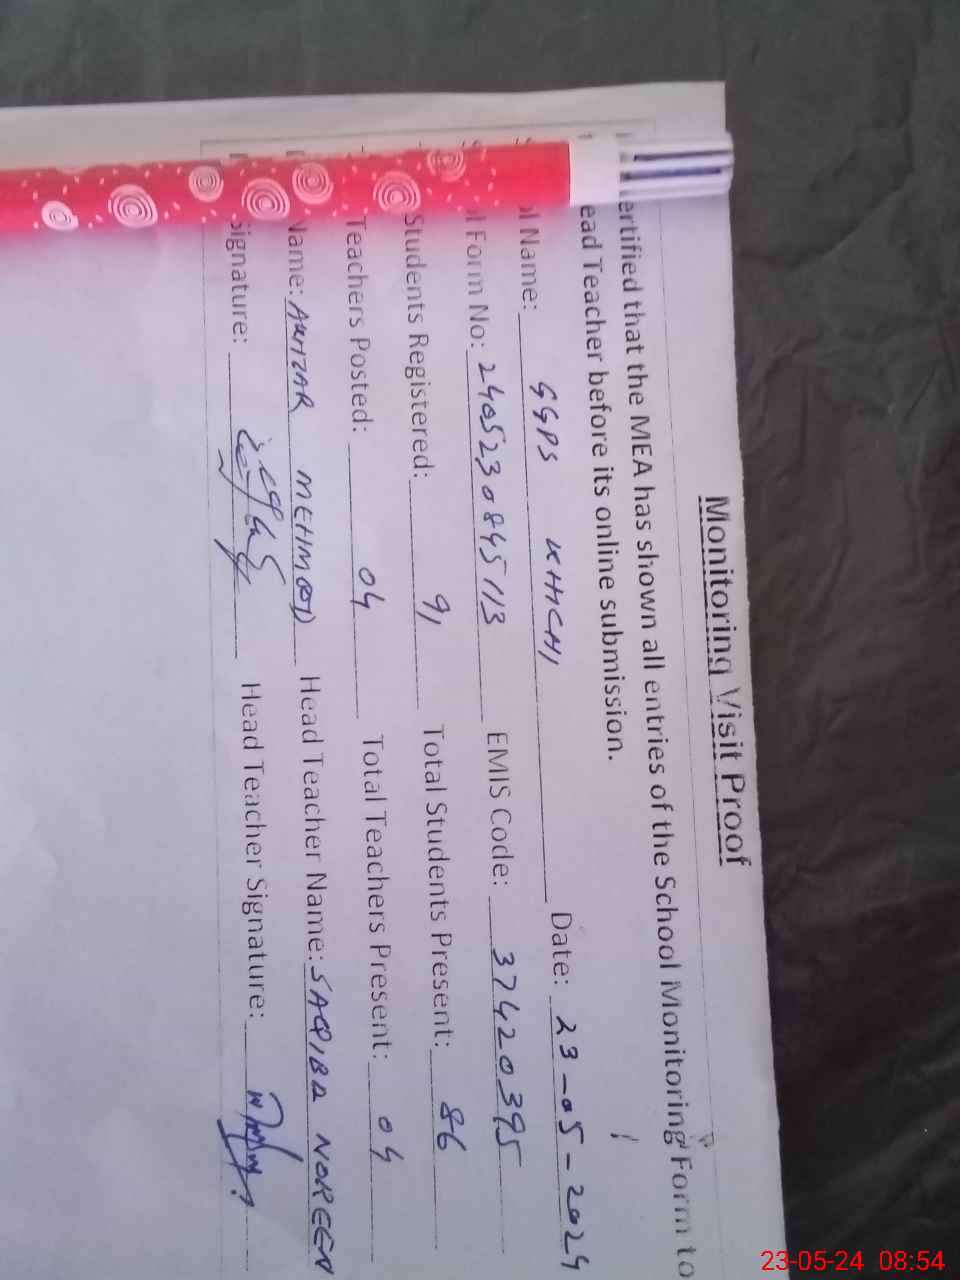 Monitoring Visit Proof
ertified that the MEA has shown all entries of the School Monitoring Form to
ead Teacher before its online submission.
ol Name: GGPS KHICHI Date: 23-05-2024
ol Form No: 2405230845113 EMIS Code: 37420395
Students Registered: 91 Total Students Present: 86
Teachers Posted: 04 Total Teachers Present: 04
Name: MEHMOOD Head Teacher Name: SAQIBA NOREEN
Signature: Head Teacher Signature:
23-05-24 08:54